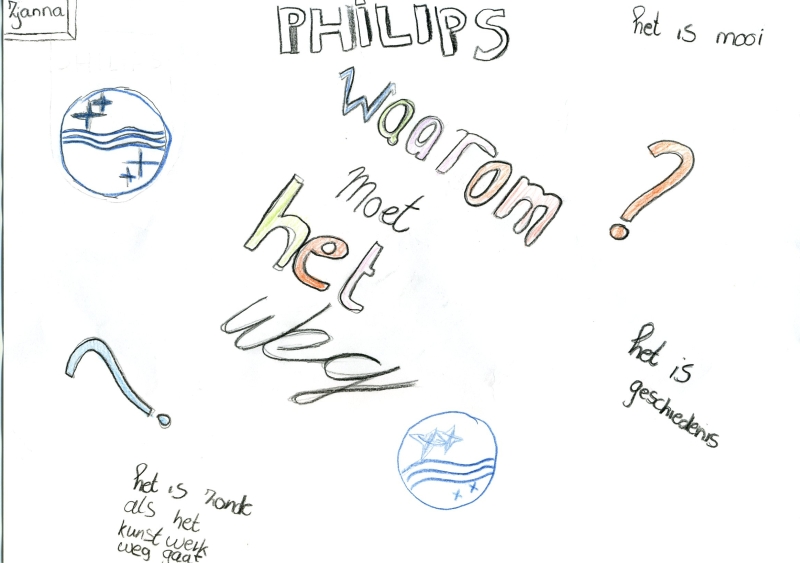 Zjanna
PHILIPS
het is mooi
Waarom
Moet
het
weg
?
?
het is
geschiedenis
het is zonde
als het
kunstwerk
weg gaat